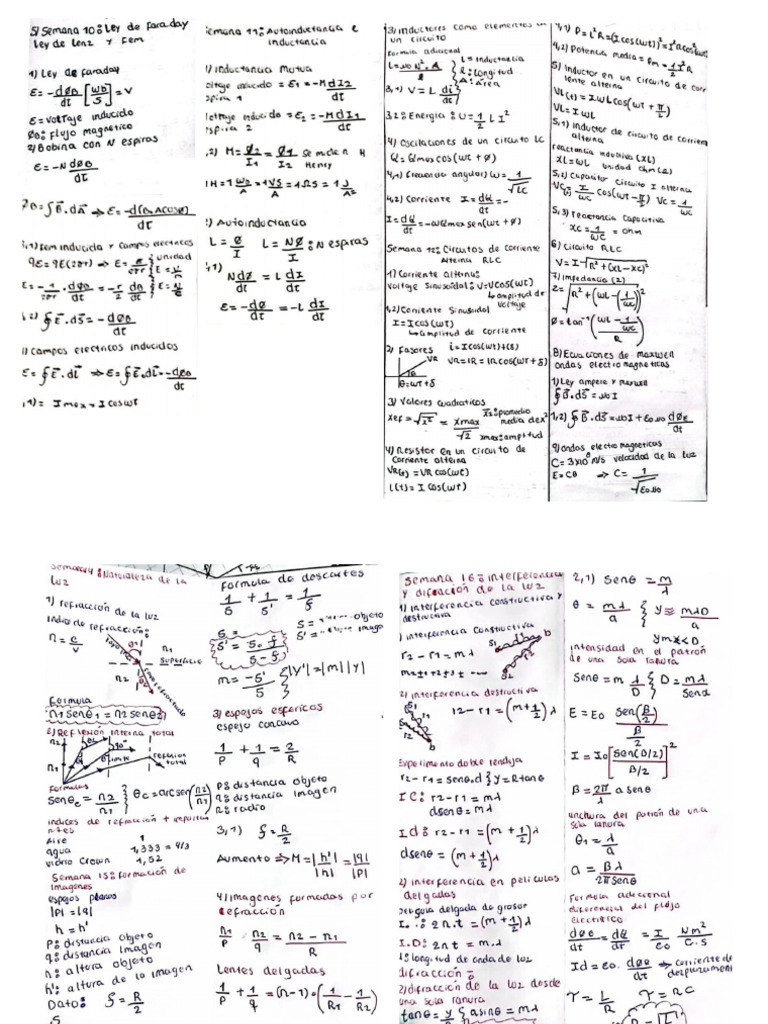 5) Semana 10: Ley de faraday
Ley de Lenz y Fem
1) Ley de faraday
ε = -dØB/dt [wb/s] = V
ε = voltaje inducido
ØB: flujo magnetico
2) Bobina con N espiras
ε = -N dØB/dt
ØB = ∮B.dA ⇒ ε = -d(B.A cosθ)/dt
fem inducida y campos electricos
qε = qE(2πr)
E = -1/2πr . dØB/dt = -r/2 dB/dt
∮E.ds = -dØB/dt
1) campos electricos inducidos
ε = ∮E.dl ⇒ ε = ∮E.dl = -dØB/dt
I max = I cos wt
Semana 11: Autoinductancia e
inductancia
1) inductancia mutua
voltaje inducido = ε1 = -M dI2/dt
espira 1
voltaje inducido = ε2 = -M dI1/dt
espira 2
M = Ø2/I1 = Ø1/I2 se mide en H
Henry
1H = 1 wb/A = 1 VS/A = 1 ΩS = 1 J/A²
2) Autoinductancia
L = Ø/I L = NØ/I : N espiras
N dØ/dt = L dI/dt
ε = -dØ/dt = -L dI/dt
3) inductores como elementos en
un circuito
Formula adicional
L = μ0 N².A/l
L = inductancia
l: longitud
A: área
3,1) V = L di/dt
3.2: Energia: U = 1/2 L I²
4) Oscilaciones de un circuito LC
Q = Qmax cos(wt + Ø)
4,1) Frecuencia angular) w = 1/√LC
4,2) Corriente I = dQ/dt = -
I = dQ/dt = -wQmax sen(wt + Ø)
Semana 12: Circuitos de corriente
Alterna RLC
1) Corriente alterna:
Voltaje sinusoidal: V = V cos(wt)
amplitud de
voltaje
1,2) Coriente sinusoidal
I = I cos(wt)
amplitud de corriente
2) Fasores i = I cos(wt)+(δ)
VR = IR = IR cos(wt + δ)
VR
θ = wt + δ
3) Valores cuadraticos
Xef = √x² = Xmax/√2
x²: promedio
media de x²
xmax: amplitud
4) Resistor en un circuito de
corriente alterna
VR(t) = VR cos(wt)
I(t) = I cos(wt)
4,1) P = i²R = (I cos(wt))² = I²R cos²(wt)
4,2) Potencia media = Pm = 1/2 I²R
5) Inductor en un circuito de cor
riente alterna
VL(t) = IWL cos(wt + π/2)
VL = I WL
5,1) inductor de circuito de corriente
alterna
reactancia inductiva (XL)
XL = WL unidad ohm (Ω)
5,2) Capacitor circuito I alterna
VC = I/wC cos(wt - π/2) VC = I/wC
5,3) reactancia capacitiva
XC = 1/wC = ohm
6) Circuito RLC
V = I √R² + (XL - XC)²
7) Impedancia (Z)
Z = √R² + (wL - (1/wC))²
Ø = tan⁻¹ (wL - 1/wC / R)
8) Ecuaciones de maxwell
ondas electro magneticas
1) Ley ampere y maxwell
∮B.ds = μ0 I
1,2) ∮B.ds = μ0I + ε0.μ0 dØE/dt
9) ondas electro magneticas
C = 3x10⁸ m/s velocidad de la luz
E = CB ⇒ C = 1/√ε0.μ0
Semana 14: Naturaleza de la
luz
1) refracción de la luz
indice de refracción:
n = c/v
n1
superficie
n2
rayo refractado
Formula
n1 senθ1 = n2 senθ2
2) Reflexión interna total
n2
n1
90°
reflexion
total
Formulas
senθc = n2/n1 } θc = arcsen(n2/n1)
indices de refracción + importan
ntes
Aire 1
agua 1,333 = 4/3
vidrio Crown 1,52
Semana 15: formación de
imagenes
espejos planos
|P| = |q|
h = h'
P: distancia objeto
q: distancia imagen
h: altura objeto
h': altura de la imagen
Dato: f = R/2
Formula de descartes
1/s + 1/s' = 1/f
s = objeto
s' = imagen
s' = s.f/s-f
m = -s'/s } |y'| = |m||y|
3) espejos esfericos
espejo concavo
1/P + 1/q = 2/R
P: distancia objeto
q: distancia imagen
R: radio
3,1) f = R/2
Aumento ⇒ M = |h'|/|h| = |q|/|P|
4) imagenes formadas por
refracción
n1/P + n2/q = n2 - n1/R
Lentes delgadas
1/P + 1/q = (n-1).(1/R1 - 1/R2)
Semana 16: interferencia
y difracción de la luz
1) interferencia constructiva y
destructiva
interferencia constructiva
r2 - r1 = mλ
2) interferencia destructiva
r2 - r1 = (m + 1/2)λ
Experimento doble rendija
r2 - r1 = senθ.d } y = R tanθ
IC: r2 - r1 = mλ
d senθ = mλ
Id: r2 - r1 = (m + 1/2)λ
d senθ = (m + 1/2)λ
2) interferencia en peliculas
delgadas
pelicula delgada de grosor
I.: 2n.t = (m + 1/2)λ
I.D: 2n.t = m.λ
λ: longitud de onda de luz
difracción:
2) difracción de la luz desde
una sola ranura
tanθ = y/ { a senθ = mλ
2,1) Senθ = m/λ
θ = mλ/a { y = mλD/a
ym << D
intensidad en el patrón
de una sola ranura
Senθ = m λ/D { D = mλ/senθ
E = E0 sen(β/2)/β/2
I = I0 [sen(β/2)/β/2]²
β = 2π/λ a senθ
anchura del patrón de una
sola ranura
θ1 = λ/a
a = βλ/2π senθ
Formula adicional
diferencial del flujo
electrico
dØE/dt = dQ/dt = I/ε0 Nm²/C.S
Id = ε0. dØE/dt ⇒ corriente de
desplazamiento
τ = L/R τ = RC